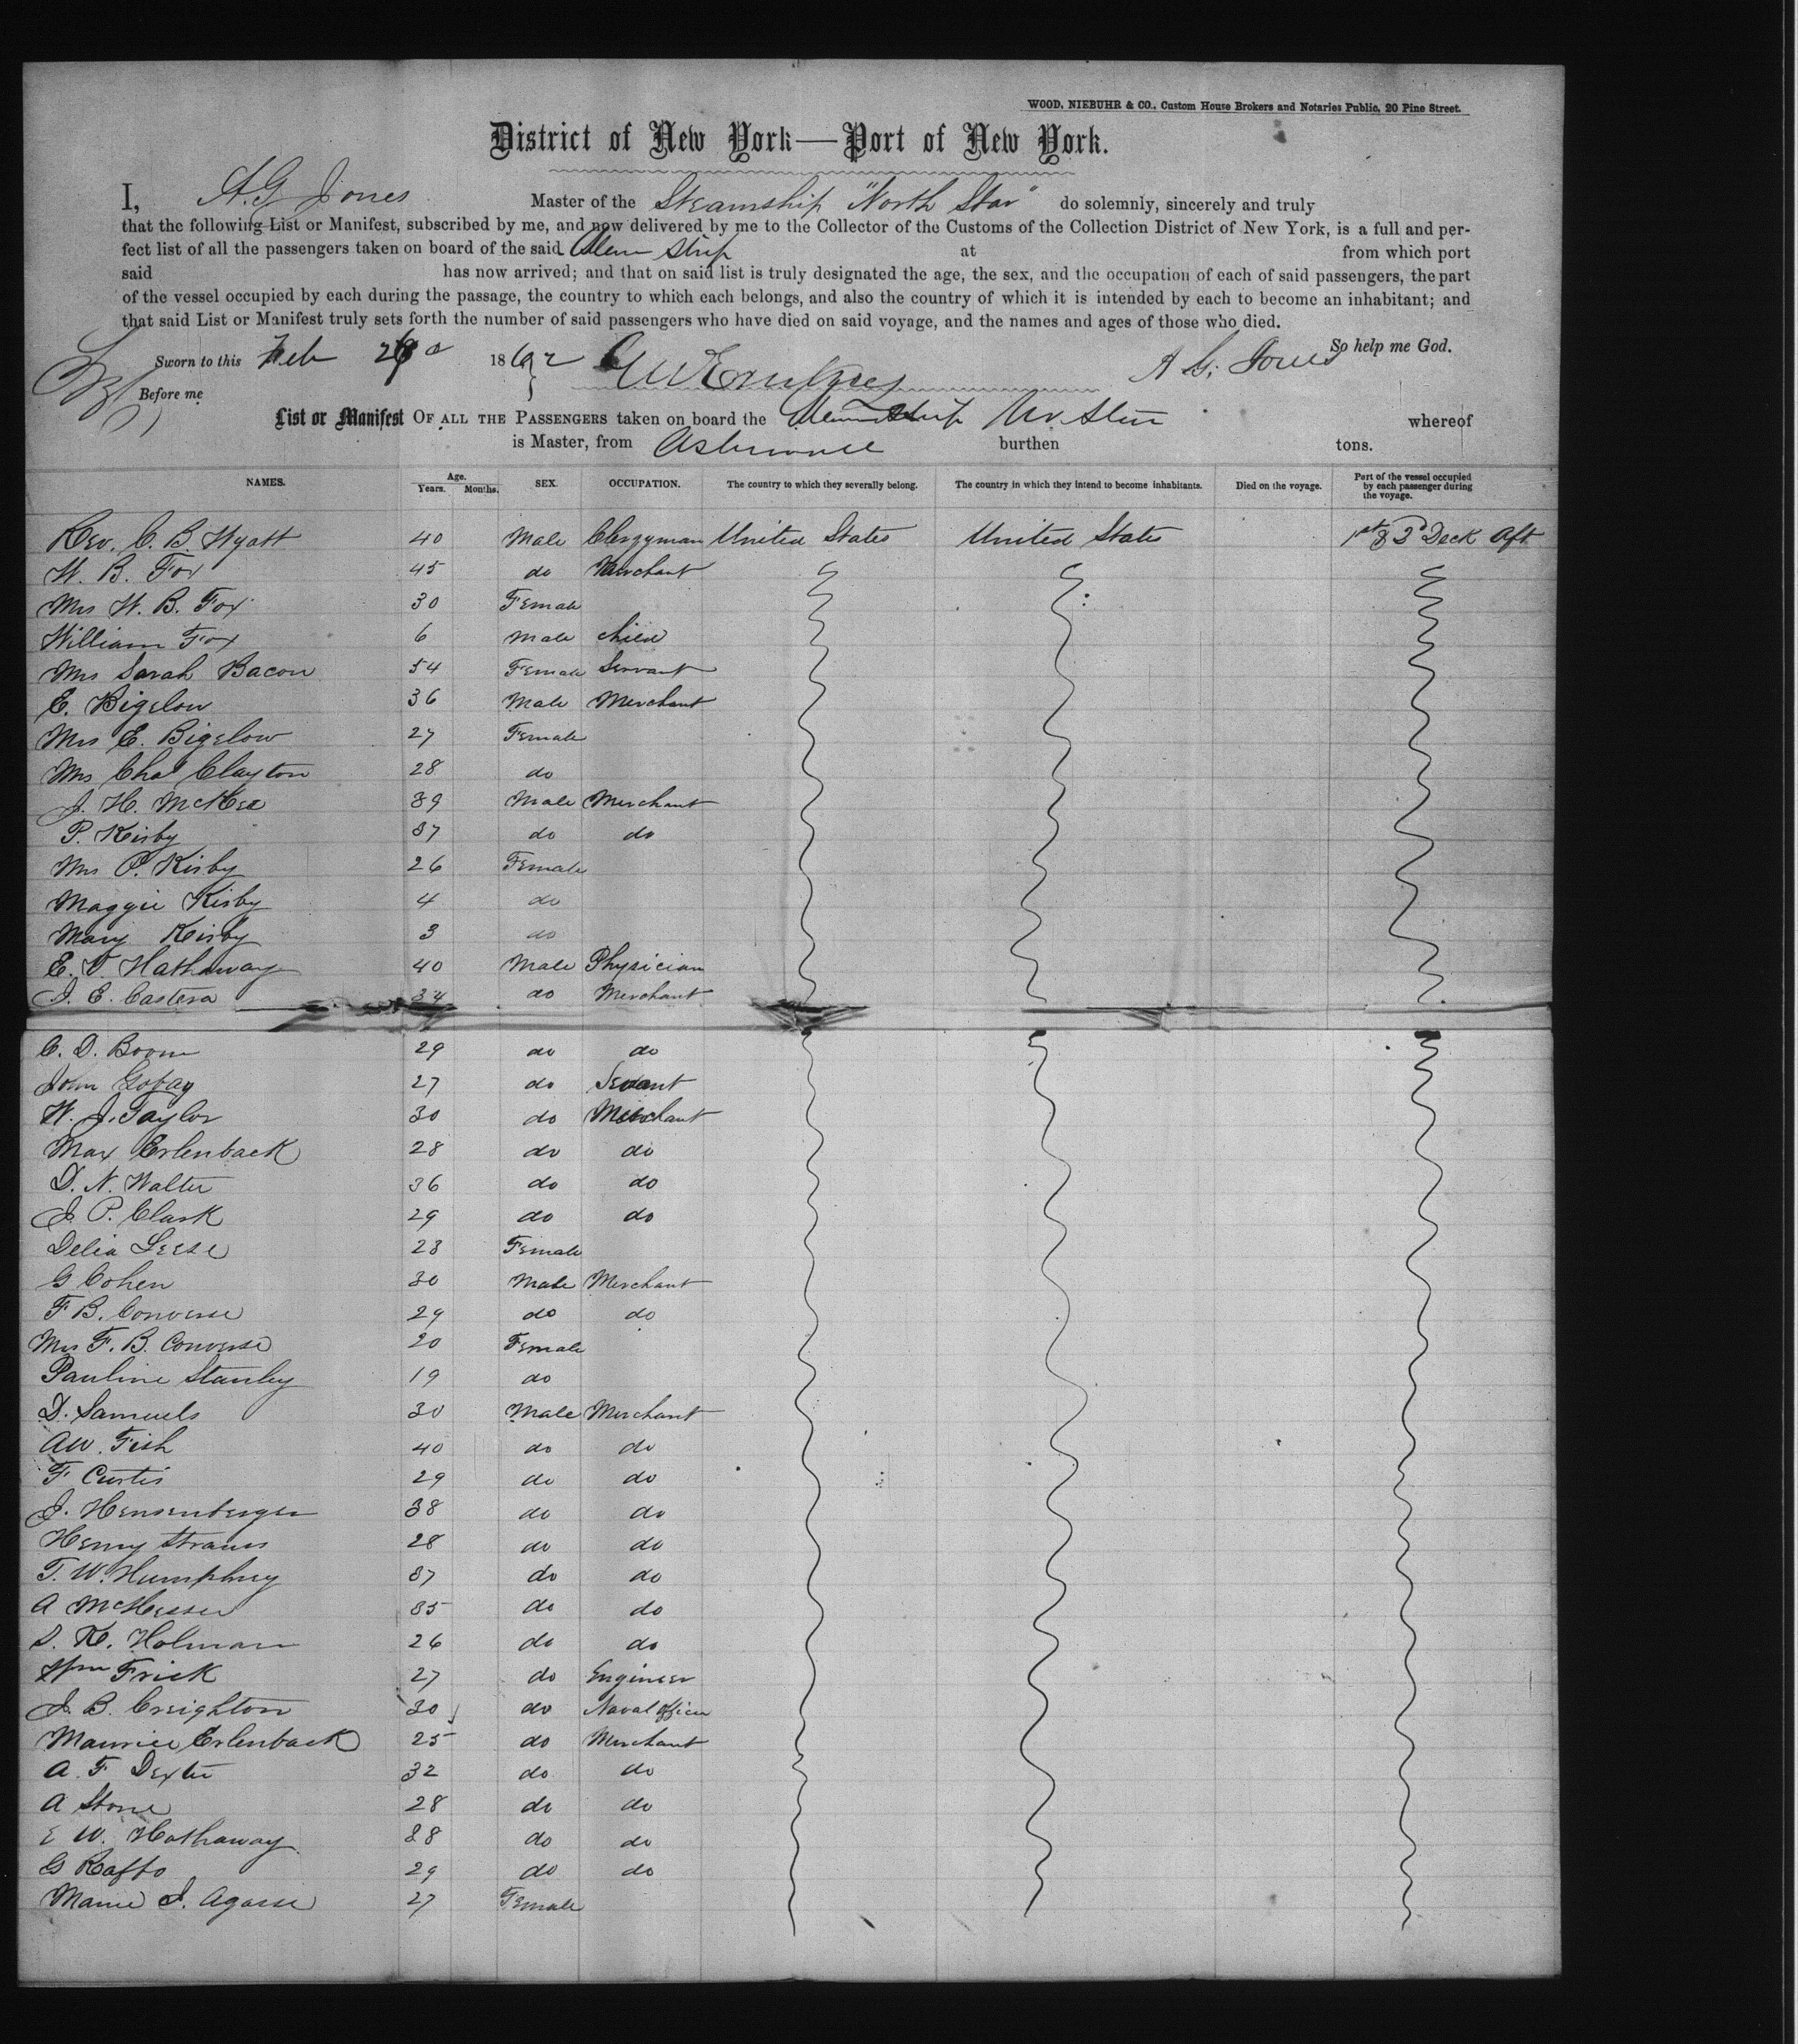 WOOD, NIEBUHR & CO., Custom House Brokers and Notaries Public, 20 Pine Street.
District of New York—Port of New York.
I, A. G Jones Master of the Steamship "North Star" do solemnly, sincerely and truly
that the following List or Manifest, subscribed by me, and now delivered by me to the Collector of the Customs of the Collection District of New York, is a full and per-
fect list of all the passengers taken on board of the said Steam Ship at from which port
said has now arrived; and that on said list is truly designated the age, the sex, and the occupation of each of said passengers, the part
of the vessel occupied by each during the passage, the country to which each belongs, and also the country of which it is intended by each to become an inhabitant; and
that said List or Manifest truly sets forth the number of said passengers who have died on said voyage, and the names and ages of those who died.
So help me God.
Sworn to this Feb 186 A G. Jones
Before me
List or Manifest OF ALL THE PASSENGERS taken on board the Steamship No. Star whereof
is Master, from Aspinwall burthen tons.
NAMES. Age. Years. Months. SEX. OCCUPATION. The country to which they severally belong. The country in which they intend to become inhabitants. Died on the voyage. Part of the vessel occupied by each passenger during the voyage.
Rev. C. B. Wyatt 40 Male Clergyman United States United States 1st & 2d Deck Aft
W. B. Fox 45 do Merchant
Mrs W. B. Fox 30 Female
William Fox 6 Male child
Mrs Sarah Bacon 54 Female Servant
E. Bigelow 36 Male Merchant
Mrs E. Bigelow 27 Female
Mrs Chas Clayton 28 do
J. H. McKee 39 Male Merchant
P. Kirby 37 do do
Mrs P. Kirby 26 Female
Maggie Kirby 4 do
Mary Kirby 3 do
E. V. Hathaway 40 Male Physician
J. E. Castera 34 do Merchant
C. D. Boom 29 do do
John 27 do Servant
W. J. Taylor 30 do Merchant
Max Erlenback 28 do do
D. N. Walter 36 do do
J. P. Clark 29 do do
Delia Leese 23 Female
G Cohen 30 Male Merchant
F B. Converse 29 do do
Mrs F. B. Converse 20 Female
Pauline Stanley 19 do
D. Samuels 30 Male Merchant
A W. Fish 40 do do
F Curtis 29 do do
J. Hensenberger 38 do do
Henry Strauss 28 do do
T. W. Humphrey 37 do do
A 35 do do
S. K. Holman 26 do do
Wm Frick 27 do Engineer
J. B. Creighton 30 do Naval officer
Maurice Erlenback 25 do Merchant
A. F Dexter 32 do do
A Stone 28 do do
E W. Hathaway 28 do do
G Raffo 29 do do
Marie J. Agasse 27 Female